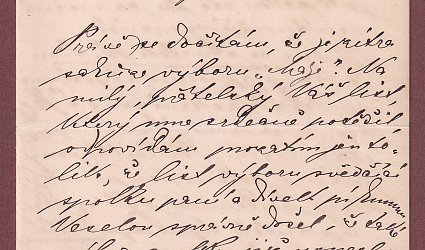 Právě se dočítám, že je zítra
schůze výboru „Máje". Na
milý, přátelský Váš list,
který mne srdečně potěšil,
odpovídám prozatím jen to-
lik, že list výboru svědčící
spolku paní a dívek pí
Veselou správně došel, že